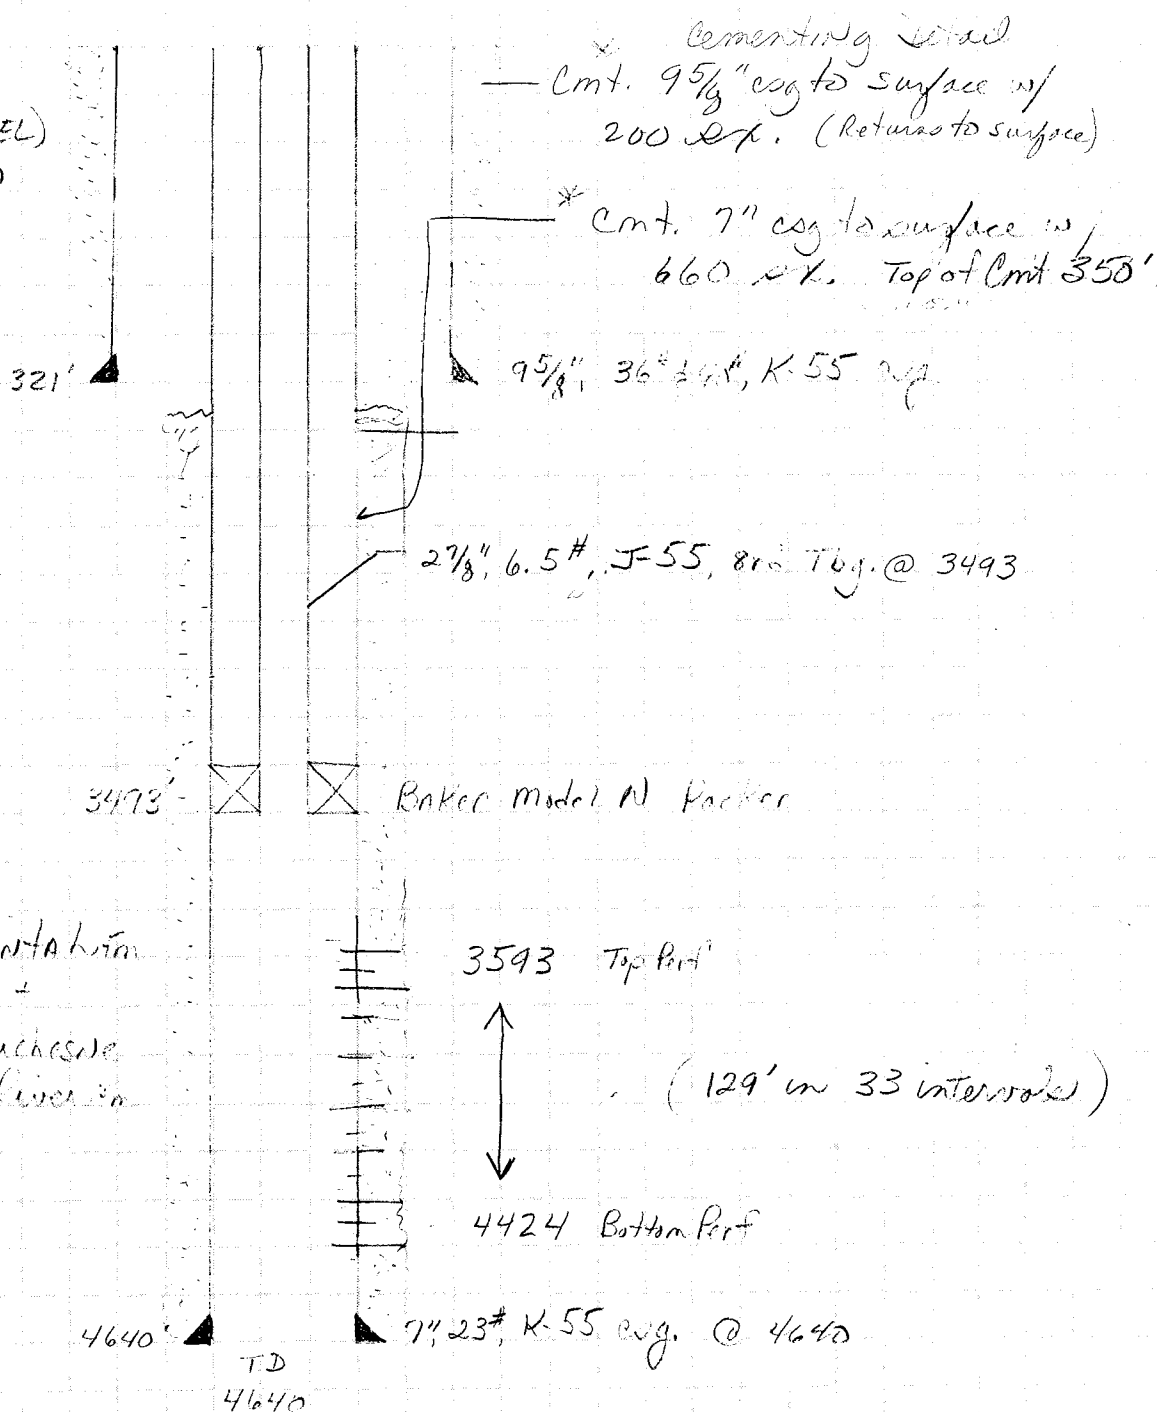 Cementing Detail
Cmt. 9 5/8" csg to surface w/
200 sx. (Returns to surface)
EL)
* Cmt. 7" csg to surface w/
660 sx. Top of Cmt 350'
321'
9 5/8", 36#, K-55 csg
2 7/8", 6.5#, J-55, 8rd Tbg. @ 3493
3493' Baker Model N Packer
3593 Top Perf
(129' in 33 intervals)
4424 Bottom Perf
4640' 7", 23#, K-55 csg. @ 4640
TD
4640